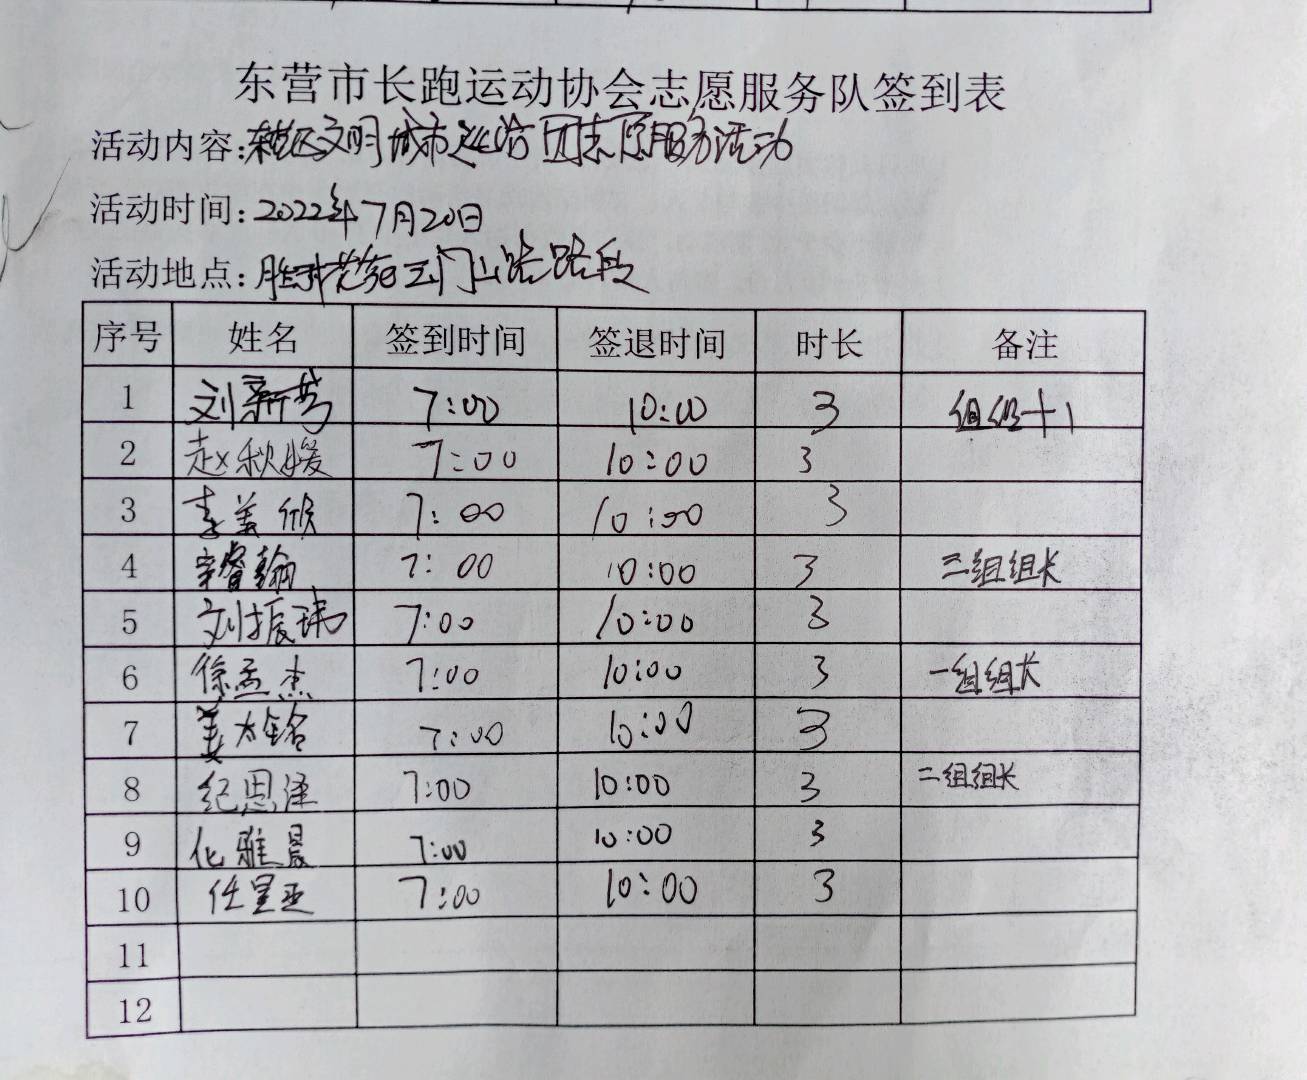 东营市长跑运动协会志愿服务队签到表
活动内容:文明城市志愿服务活动
活动时间:2022年7月20日
活动地点:胜利花苑云门山路路段
序号 姓名 签到时间 签退时间 时长 备注
1 刘新芳 7:00 10:00 3 组织+1
2 赵秋媛 7:00 10:00 3
3 李美欣 7:00 10:00 3
4 宋睿翰 7:00 10:00 3 三组组长
5 刘振玮 7:00 10:00 3
6 徐孟杰 7:00 10:00 3 一组组长
7 姜太铭 7:00 10:00 3
8 纪思泽 7:00 10:00 3 二组组长
9 化雅晨 7:00 10:00 3
10 任星亚 7:00 10:00 3
11
12